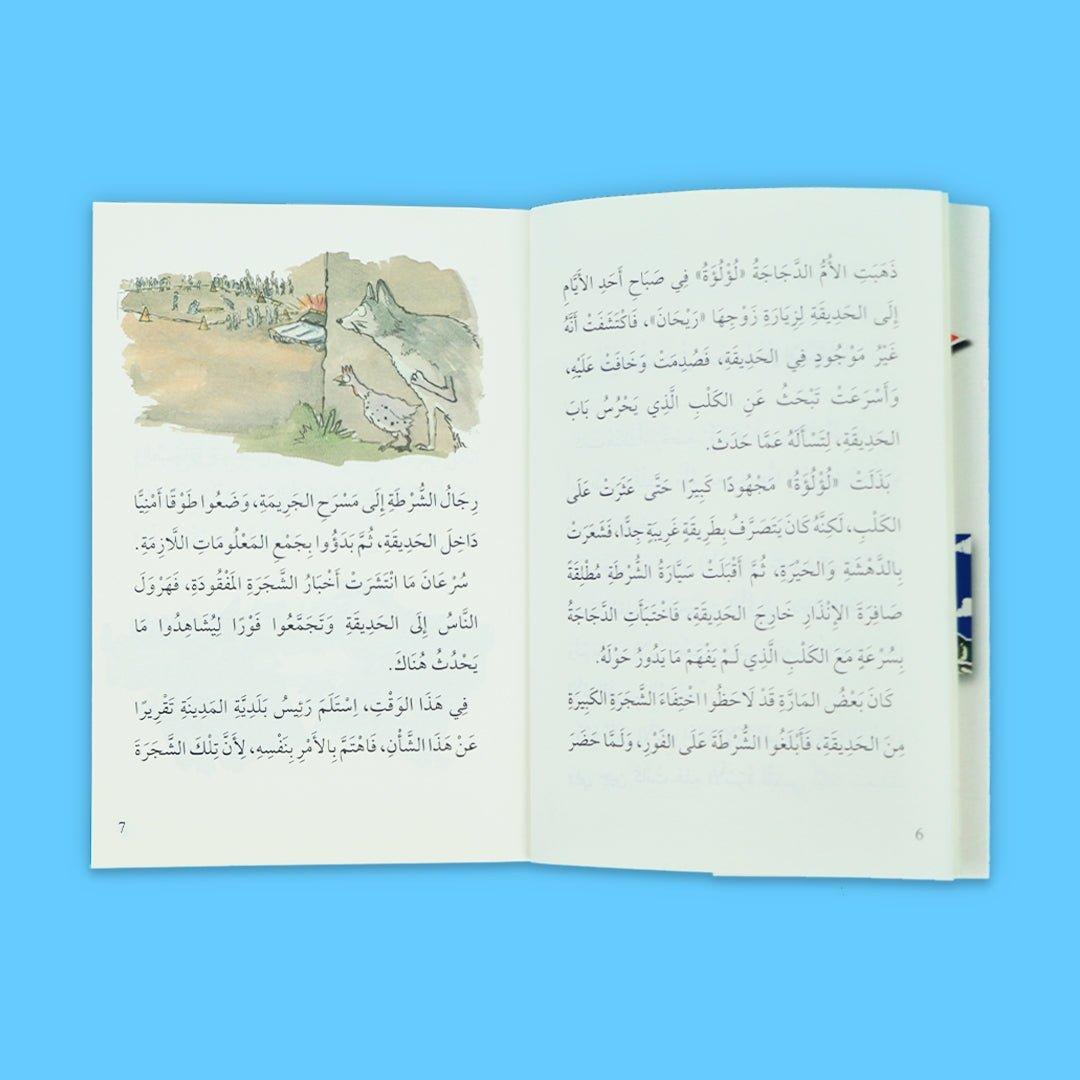 ذَهَبَتِ الأُمُّ الدَّجَاجَةُ «لُؤْلُؤَةُ» فِي صَبَاحِ أَحَدِ الأَيَّامِ
إِلَى الحَدِيقَةِ لِزِيَارَةِ زَوْجِهَا «رَيْحَانَ»، فَاكْتَشَفَتْ أَنَّهُ
غَيْرُ مَوْجُودٍ فِي الحَدِيقَةِ، فَصُدِمَتْ وَخَافَتْ عَلَيْهِ،
وَأَسْرَعَتْ تَبْحَثُ عَنِ الكَلْبِ الَّذِي يَحْرُسُ بَابَ
الحَدِيقَةِ، لِتَسْأَلَهُ عَمَّا حَدَثَ.
بَذَلَتْ «لُؤْلُؤَةُ» مَجْهُودًا كَبِيرًا حَتَّى عَثَرَتْ عَلَى
الكَلْبِ، لَكِنَّهُ كَانَ يَتَصَرَّفُ بِطَرِيقَةٍ غَرِيبَةٍ جِدًّا، فَشَعَرَتْ
بِالدَّهْشَةِ وَالحَيْرَةِ، ثُمَّ أَقْبَلَتْ سَيَّارَةُ الشُّرْطَةِ مُطْلِقَةً
صَافِرَةَ الإِنْذَارِ خَارِجَ الحَدِيقَةِ، فَاخْتَبَأَتِ الدَّجَاجَةُ
بِسُرْعَةٍ مَعَ الكَلْبِ الَّذِي لَمْ يَفْهَمْ مَا يَدُورُ حَوْلَهُ.
كَانَ بَعْضُ المَارَّةِ قَدْ لَاحَظُوا اخْتِفَاءَ الشَّجَرَةِ الكَبِيرَةِ
مِنَ الحَدِيقَةِ، فَأَبْلَغُوا الشُّرْطَةَ عَلَى الفَوْرِ، وَلَمَّا حَضَرَ
6
رِجَالُ الشُّرْطَةِ إِلَى مَسْرَحِ الجَرِيمَةِ، وَضَعُوا طَوْقًا أَمْنِيًّا
دَاخِلَ الحَدِيقَةِ، ثُمَّ بَدَؤُوا بِجَمْعِ المَعْلُومَاتِ اللَّازِمَةِ.
سُرْعَانَ مَا انْتَشَرَتْ أَخْبَارُ الشَّجَرَةِ المَفْقُودَةِ، فَهَرْوَلَ
النَّاسُ إِلَى الحَدِيقَةِ وَتَجَمَّعُوا فَوْرًا لِيُشَاهِدُوا مَا
يَحْدُثُ هُنَاكَ.
فِي هَذَا الوَقْتِ، اِسْتَلَمَ رَئِيسُ بَلَدِيَّةِ المَدِينَةِ تَقْرِيرًا
عَنْ هَذَا الشَّأْنِ، فَاهْتَمَّ بِالأَمْرِ بِنَفْسِهِ، لِأَنَّ تِلْكَ الشَّجَرَةَ
7